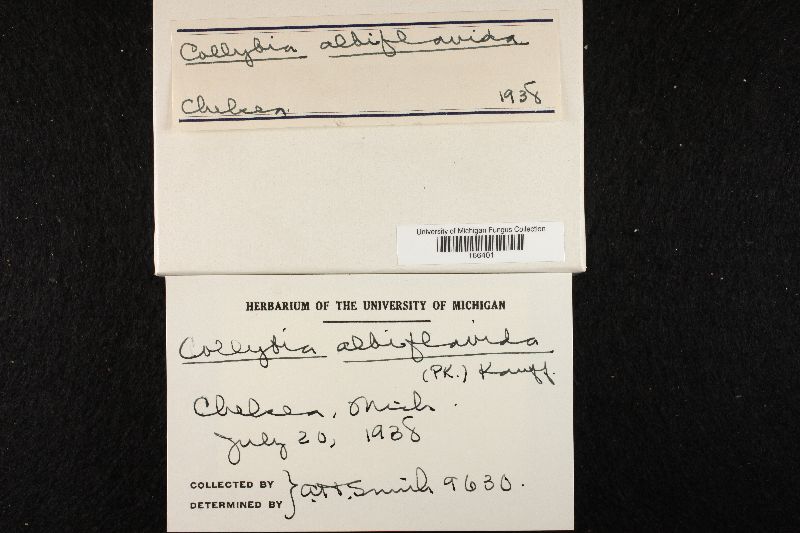 Collybia albiflavida
Chelsea. 1938
University of Michigan Fungus Collection
166401
HERBARIUM OF THE UNIVERSITY OF MICHIGAN
Collybia albiflavida
(PK.) Kauff.
Chelsea, Mich.
July 20, 1938
COLLECTED BY
DETERMINED BY } A.H.Smith 9630.